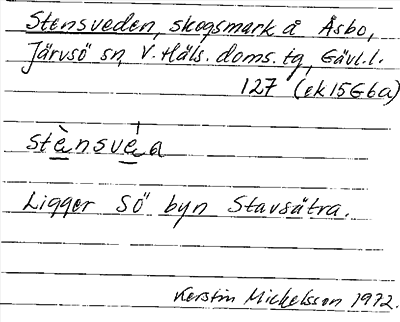 Stensveden, skogsmark å Åsbo,
Järvsö sn, V. Häls. doms. tg, Gävl.l.
127 (ek 15G6a)
stènsvéa
Ligger SÖ byn Stavsätra.
Kerstin Mickelsson 1972.